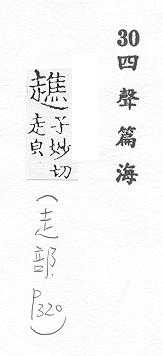 30 四聲篇海
趭
子妙切
走皃
(走部 P320)